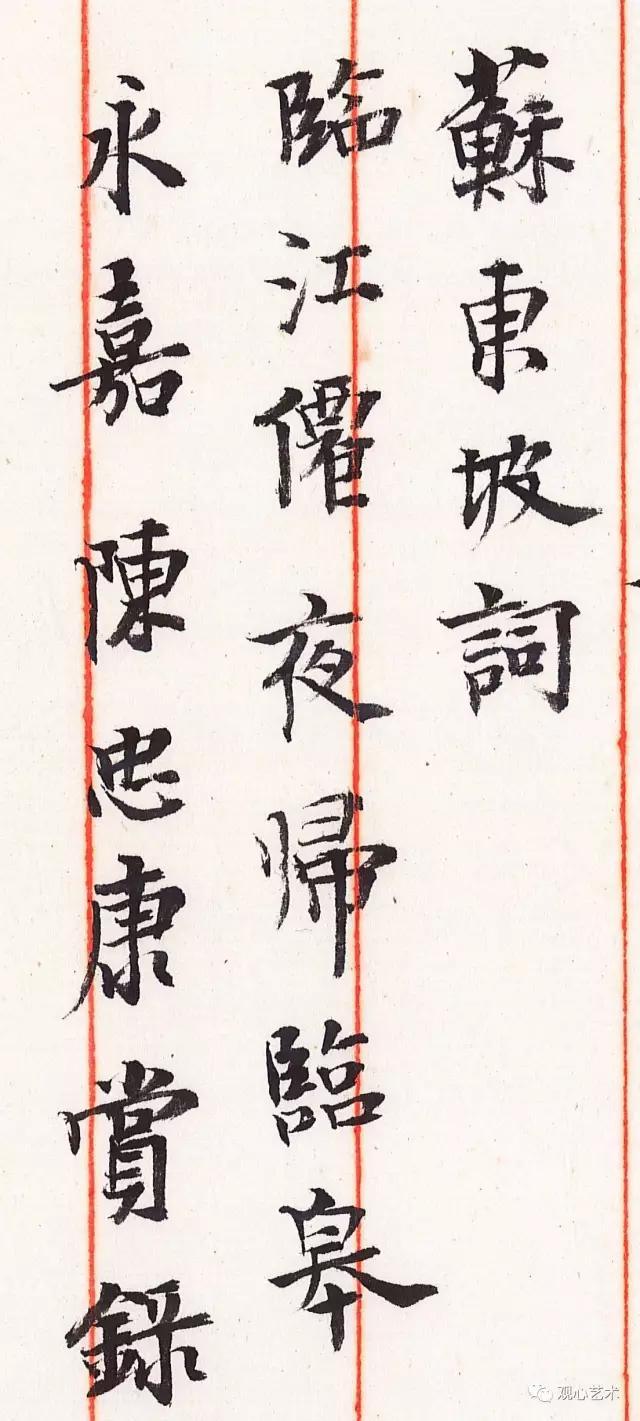 蘇東坡詞
臨江僊夜帰臨皋
永嘉陳忠康賞錄
观心艺术